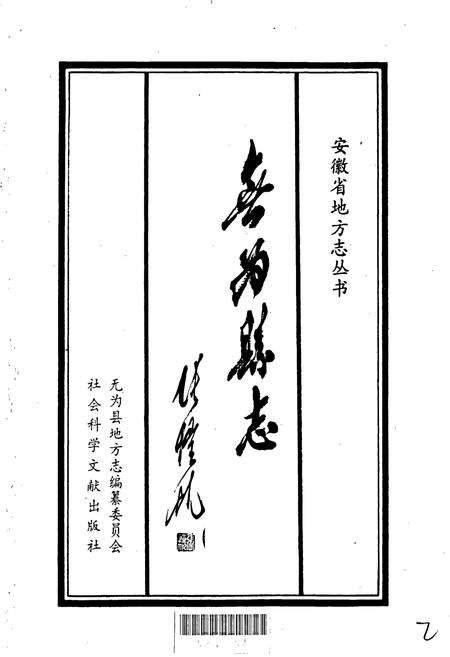 安徽省地方志丛书
無为縣志
張愷帆
无为县地方志编纂委员会
社会科学文献出版社